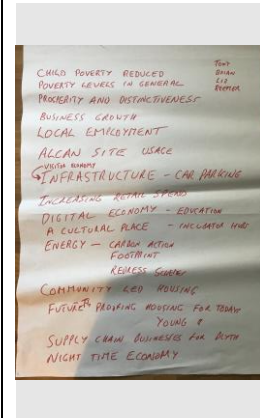 TONY
BRIAN
LIZ
CHILD POVERTY REDUCED
POVERTY LEVELS IN GENERAL
PROSPERITY AND DISTINCTIVENESS
BUSINESS GROWTH
LOCAL EMPLOYMENT
ALCAN SITE USAGE
VISITOR ECONOMY
INFRASTRUCTURE - CAR PARKING
INCREASING RETAIL SPEND
DIGITAL ECONOMY - EDUCATION
A CULTURAL PLACE - INCUBATOR HUB
ENERGY - CARBON ACTION
FOOTPRINT
REDRESS
COMMUNITY LED HOUSING
FUTURE PROOFING HOUSING FOR TODAY
YOUNG
SUPPLY CHAIN BUSINESSES FOR BLYTH
NIGHT TIME ECONOMY